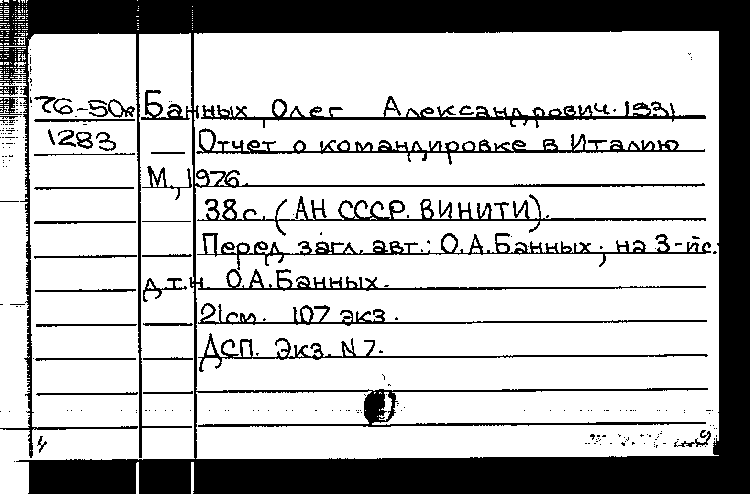 76-50к Банных, Олег Александрович. 1931
1283 Отчет о командировке в Италию
М., 1976.
38с. (АН СССР. ВИНИТИ).
Перед загл. авт.: О.А.Банных; на 3-й с.:
д.т.н. О.А.Банных.
21см. 107 экз.
ДСП. Экз. N 7.
4